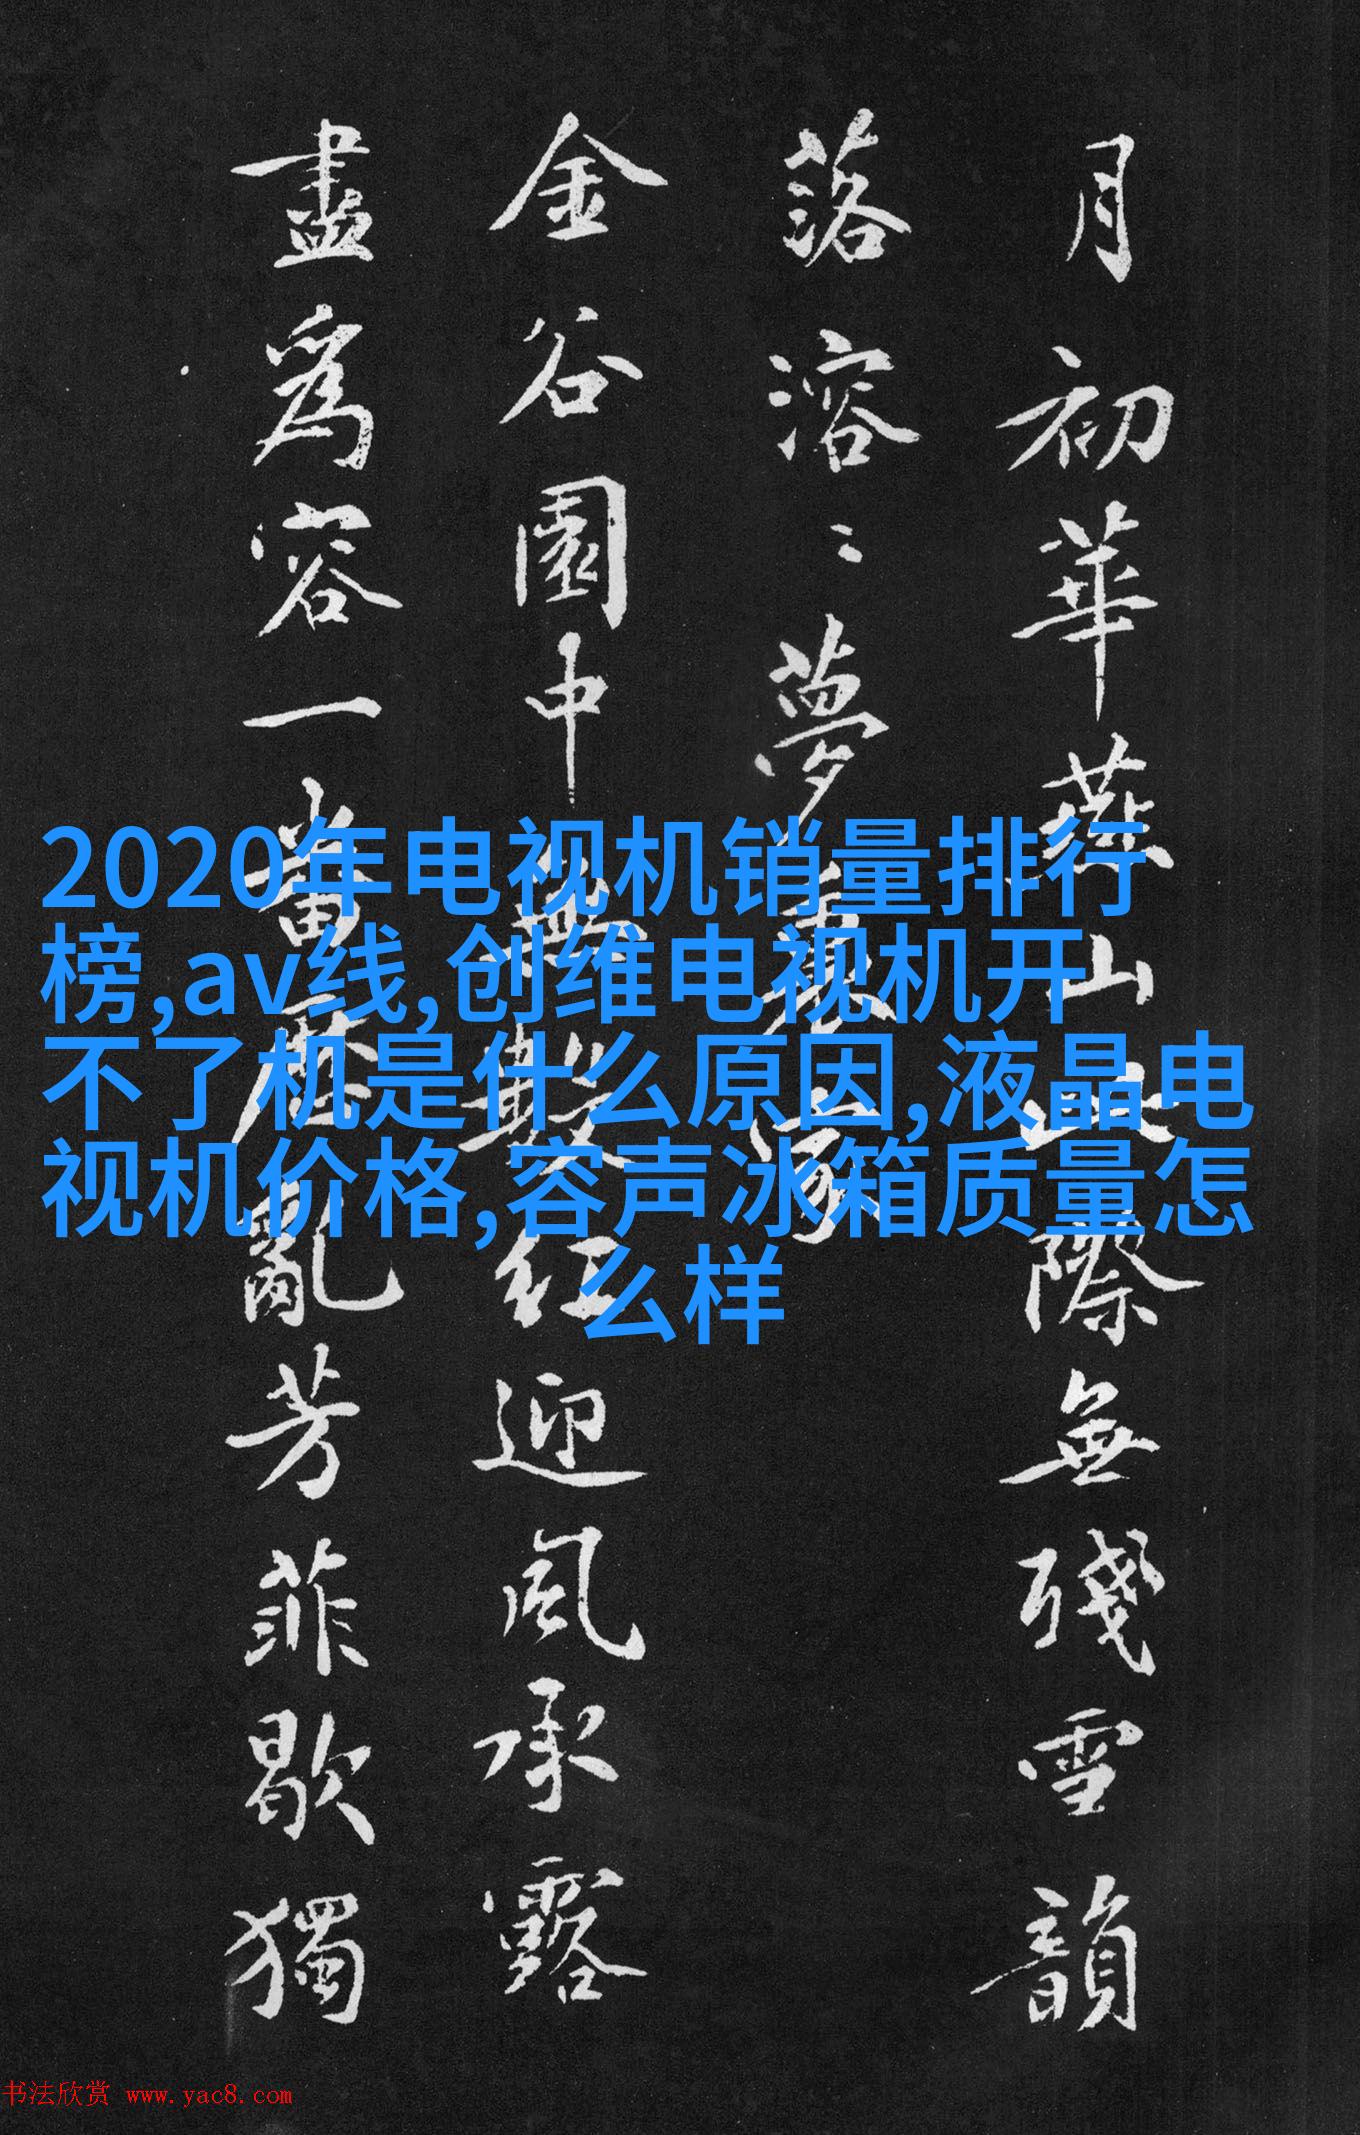 月初華燕山此際無殘雪韻
落溶〻夢裏家
金谷園中無數紅迎風承露
盡爲容一番歷亂芳菲歇獨
2020年电视机销量排行
榜,av线,创维电视机开
不了机是什么原因,液晶电
视机价格,容声冰箱质量怎
么样
书法欣赏 www.yac8.com